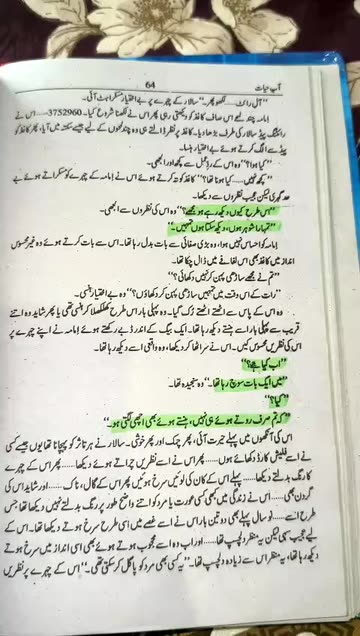 آب حیات
64
"آل رائٹ...... لکھو پھر۔" سالار کے چہرے پر بے اختیار مسکراہٹ آئی۔
امامہ چند لمحے اس صاف کاغذ کو دیکھتی رہی پھر اس نے لکھنا شروع کیا۔ 3752960...... اس نے
رائٹنگ پیڈ سالار کی طرف بڑھا دیا۔ کاغذ پر نظر ڈالتے ہی وہ چند لمحوں کے لیے جیسے سکتہ میں آیا، پھر کاغذ کو
پیڈ سے الگ کرتے ہوئے بے اختیار ہنسا۔
"کیا ہوا؟" وہ اس کے ردِ عمل سے کچھ اور الجھی۔
"کچھ نہیں...... کیا ہونا تھا؟" کاغذ کو تہ کرتے ہوئے اس نے امامہ کے چہرے کو مسکراتے ہوئے بے
حد گہری لیکن عجیب نظروں سے دیکھا۔
"اس طرح کیوں دیکھ رہے ہو مجھے؟" وہ اس کی نظروں سے الجھی۔
"تمہارا شوہر ہوں، دیکھ سکتا ہوں تمہیں۔"
امامہ کو احساس نہیں ہوا، وہ بڑی صفائی سے بات بدل رہا تھا۔ اس سے بات کرتے ہوئے وہ غیر محسوس
انداز میں کاغذ بھی اس لفافے میں ڈال چکا تھا۔
"تم نے مجھے ساڑھی پہن کر نہیں دکھائی؟"
"رات کے اس وقت میں تمہیں ساڑھی پہن کر دکھاؤں؟" وہ بے اختیار ہنسی۔
وہ اس کے پاس سے اٹھتے اٹھتے رک گیا۔ وہ پہلی بار اس طرح کھلکھلا کر ہنسی تھی یا پھر شاید وہ اتنے
قریب سے پہلی بار اسے ہنستے دیکھ رہا تھا۔ ایک بیگ کے اندر ڈبے رکھتے ہوئے امامہ نے اپنے چہرے پر
اس کی نظریں محسوس کیں۔ اس نے سر اٹھا کر دیکھا، وہ واقعی اسے دیکھ رہا تھا۔
"اب کیا ہے؟"
"میں ایک بات سوچ رہا تھا۔" وہ سنجیدہ تھا۔
"کیا؟"
"کہ تم صرف روتے ہوئے ہی نہیں، ہنستے ہوئے بھی اچھی لگتی ہو۔"
اس کی آنکھوں میں پہلے حیرت آئی، پھر چمک اور پھر خوشی۔ سالار نے ہر تاثر کو پہچانا تھا یوں جیسے کسی
نے اسے فلیش کارڈ دکھائے ہوں...... پھر اس نے اسے نظریں چراتے ہوئے دیکھا...... پھر اس کے چہرے
کا رنگ بدلتے دیکھا...... پہلے اس کے کان کی لوئیں سرخ ہوئیں پھر اس کے گال، ناک...... اور شاید اس کی
گردن بھی...... اس نے زندگی میں کبھی کسی عورت یا مرد کو اتنے واضح طور پر رنگ بدلتے نہیں دیکھا تھا، جس
طرح اسے...... نو سال پہلے بھی دو تین بار اس نے اسے غصے میں اسی طرح سرخ ہوتے دیکھا تھا۔ اس کے
لیے عجیب سہی لیکن یہ منظر دلچسپ تھا...... اور اب وہ اسے محجوب ہوتے ہوئے بھی اسی انداز میں سرخ ہوتے
دیکھ رہا تھا، یہ منظر اس سے زیادہ دلچسپ تھا۔ "یہ کسی بھی مرد کو پاگل کر سکتی تھی۔" اس کے چہرے پر نظریں